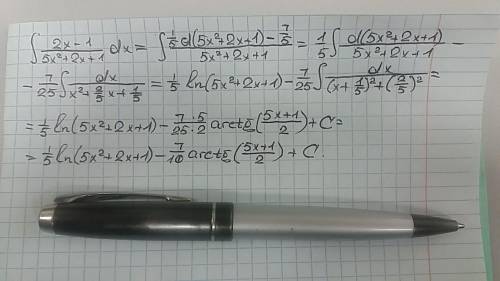 ∫ (2x-1)/(5x²+2x+1) dx = ∫ (1/5 d(5x²+2x+1) - 7/5)/(5x²+2x+1) = 1/5 ∫ d(5x²+2x+1)/(5x²+2x+1) -
- 7/25 ∫ dx/(x²+2/5x+1/5) = 1/5 ln(5x²+2x+1) - 7/25 ∫ dx/((x+1/5)²+(2/5)²) =
= 1/5 ln(5x²+2x+1) - 7·5/25·2 arctg(5x+1/2) + C =
= 1/5 ln(5x²+2x+1) - 7/10 arctg(5x+1/2) + C.